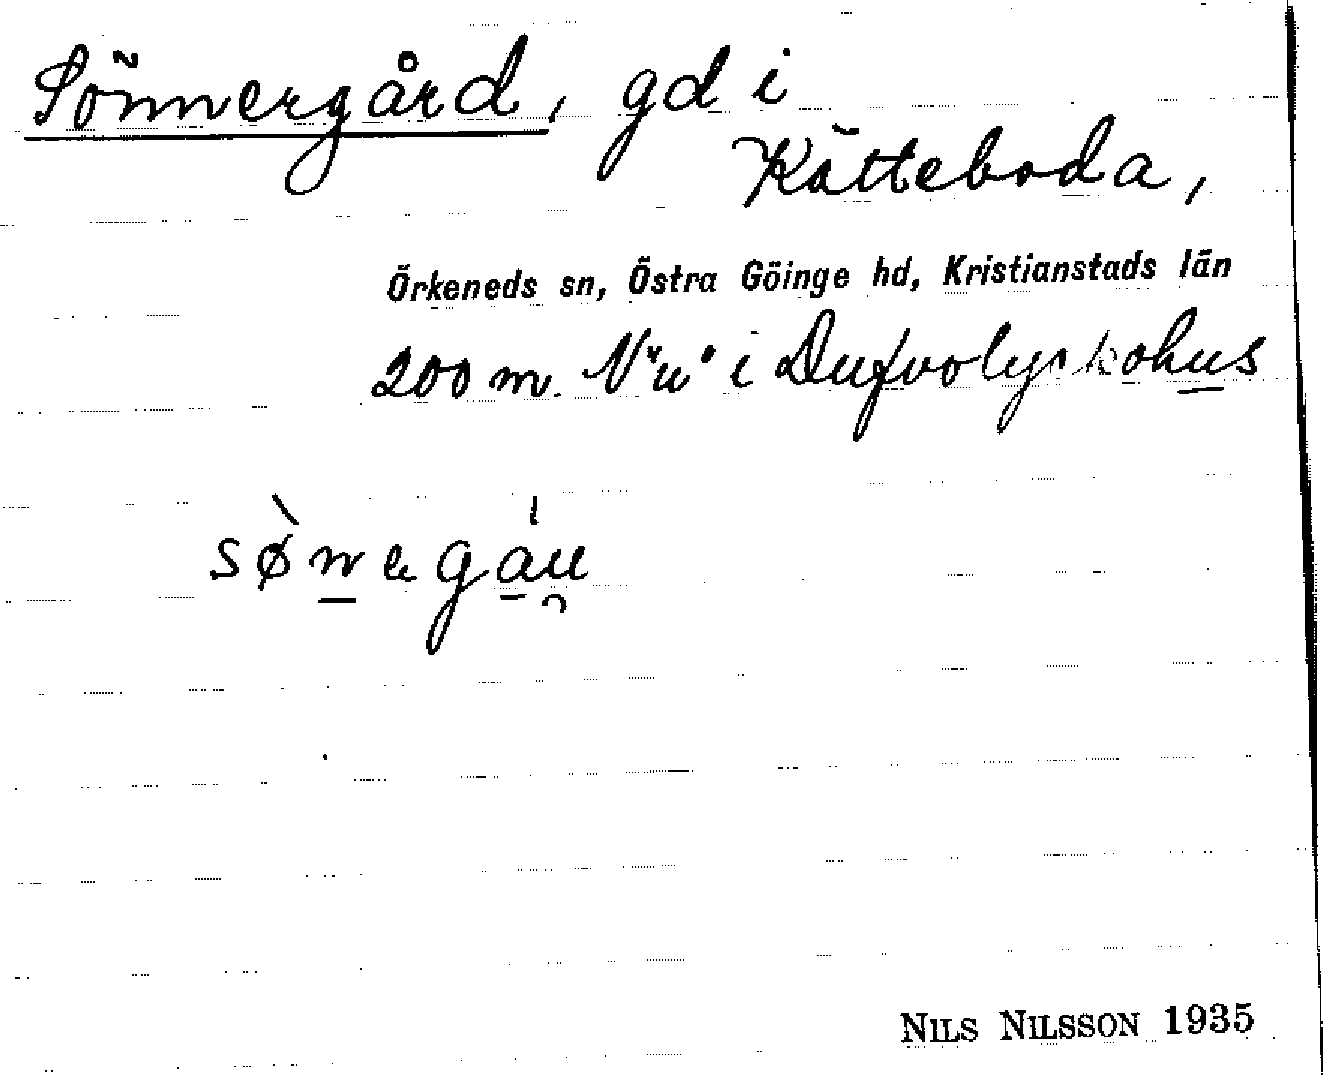 Sönnergård, gd i
Kätteboda,
Örkeneds sn, Östra Göinge hd, Kristianstads län
200 m. N "u" i Dufvolyckohus
NILS NILSSON 1935